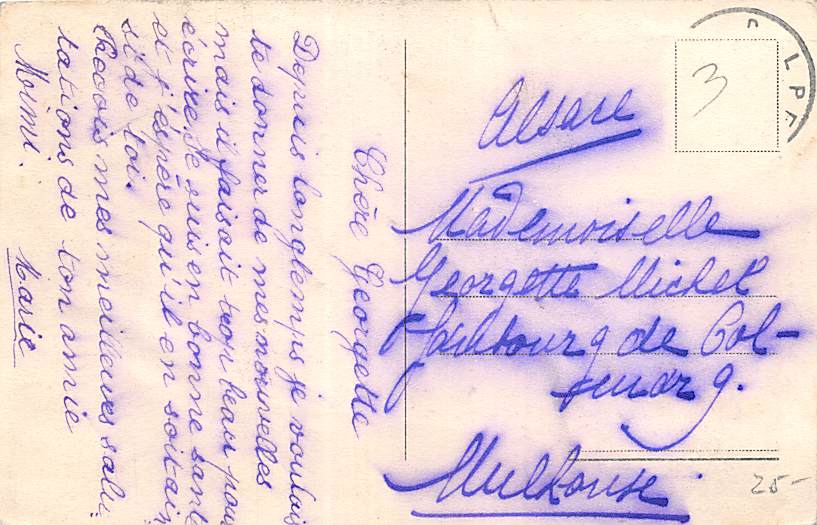 Chère Georgette
Depuis longtemps je voulais
te donner de mes nouvelles
mais il faisait trop beau pour
écrire. Je suis en bonne santé
et j'éspère qu'il en soit ain
si de toi.
Recois mes meilleures salu
tations de ton amie
Mimi. Marie
3
Alsace
Mademoiselle
Georgette Michel
faubourg de Col-
mar 9.
Mulhouse
25-